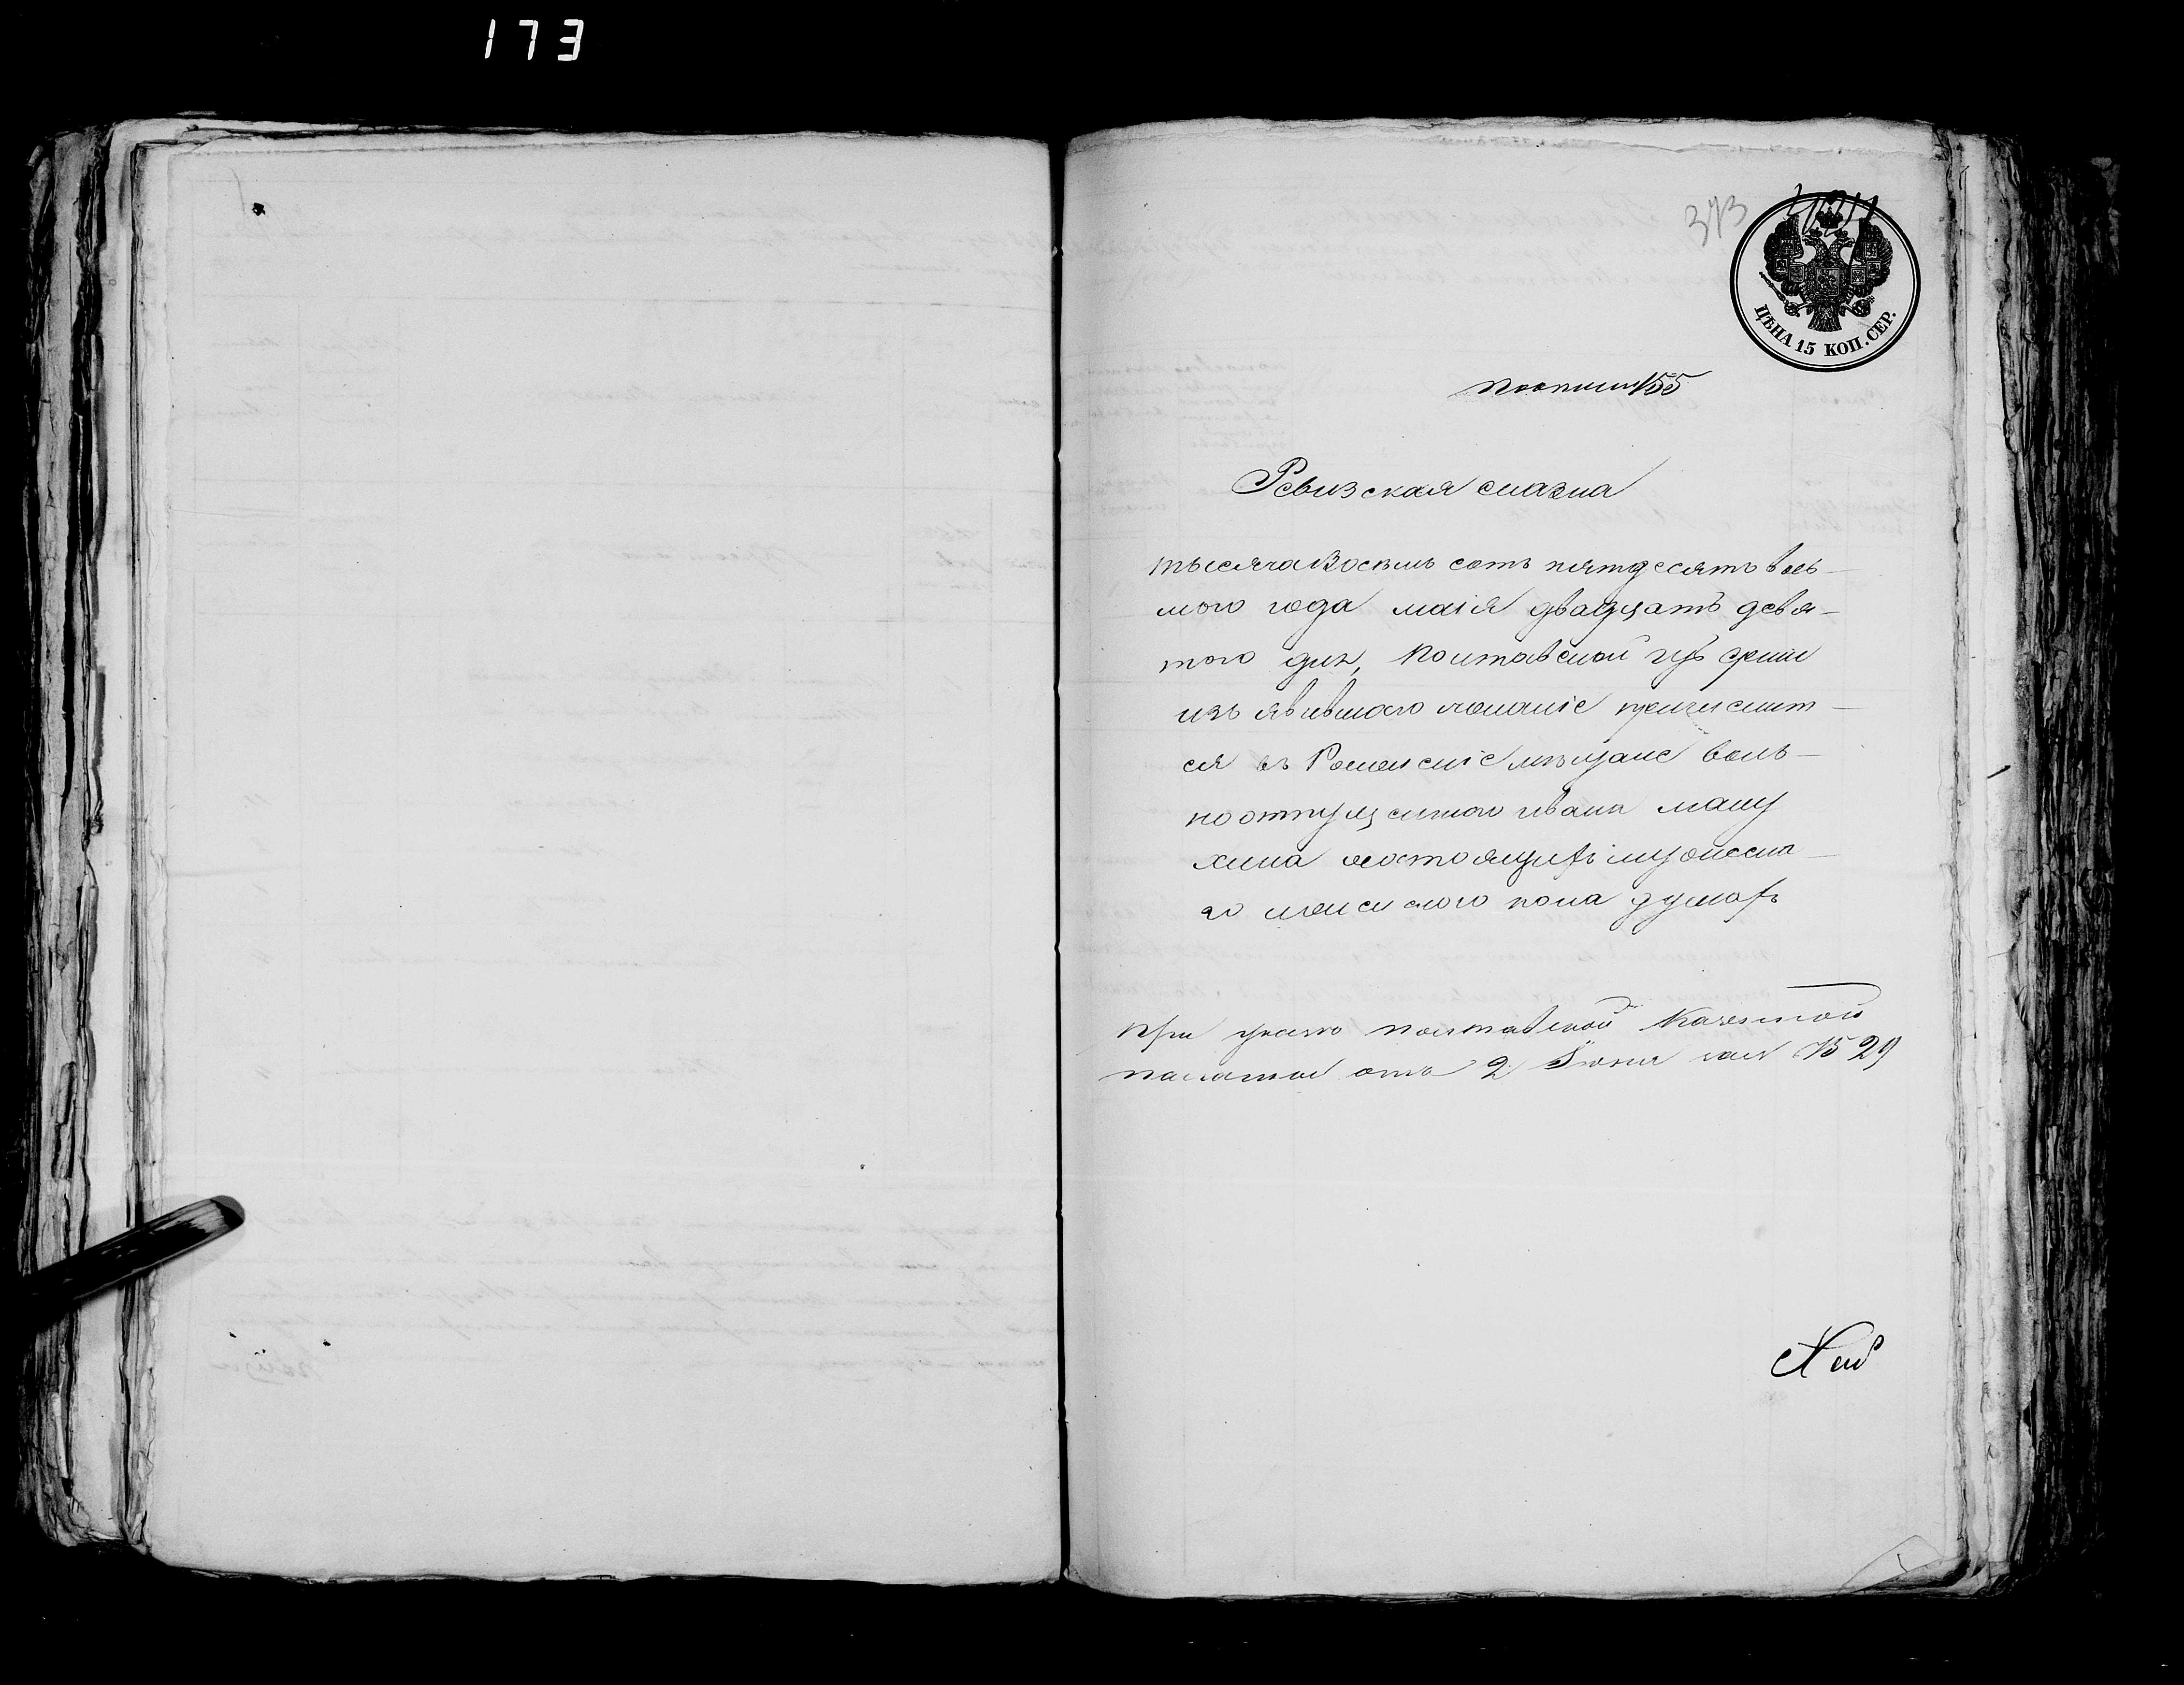 173
373
ЦѢНА 15 КОП. СЕР.
155
Ревизская сказка
тысяча восемь сотъ пятдесятъ вось-
мого года маія двадцатъ девя-
того дня, Полтавской губерніи
изъявившаго желаніе причислит-
ся въ Роменскіе мѣщане воль-
ноотпущенного ивана машу
хина состоящаго
го мужского пола душахъ
при указе полтавской Казенной
палаты отъ 2 Іюня за № 29